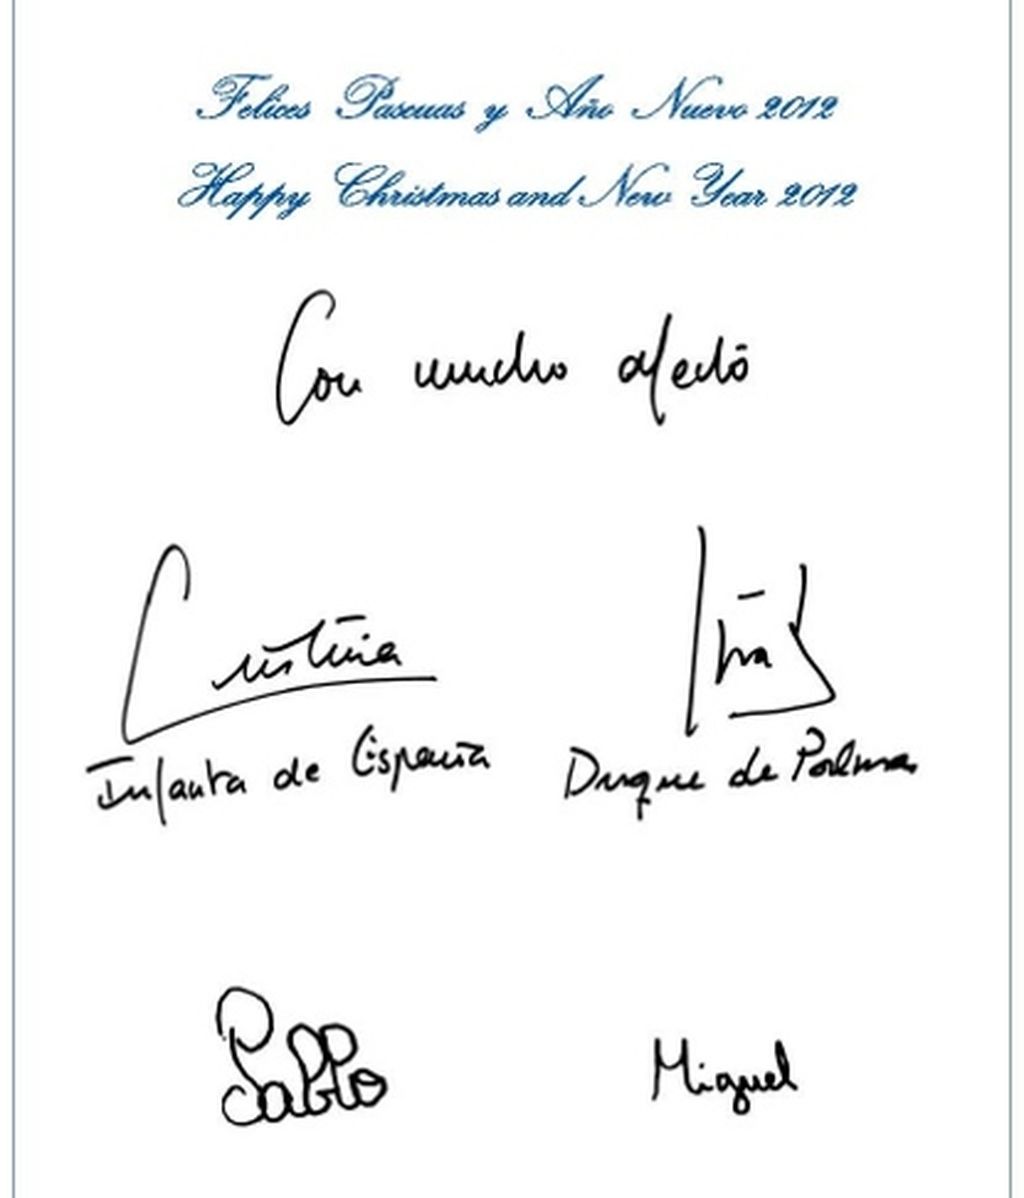 Felices Pascuas y Año Nuevo 2012
Happy Christmas and New Year 2012
Con mucho afecto
Cristina Iñaki
Infanta de España Duque de Palma
Pablo Miguel